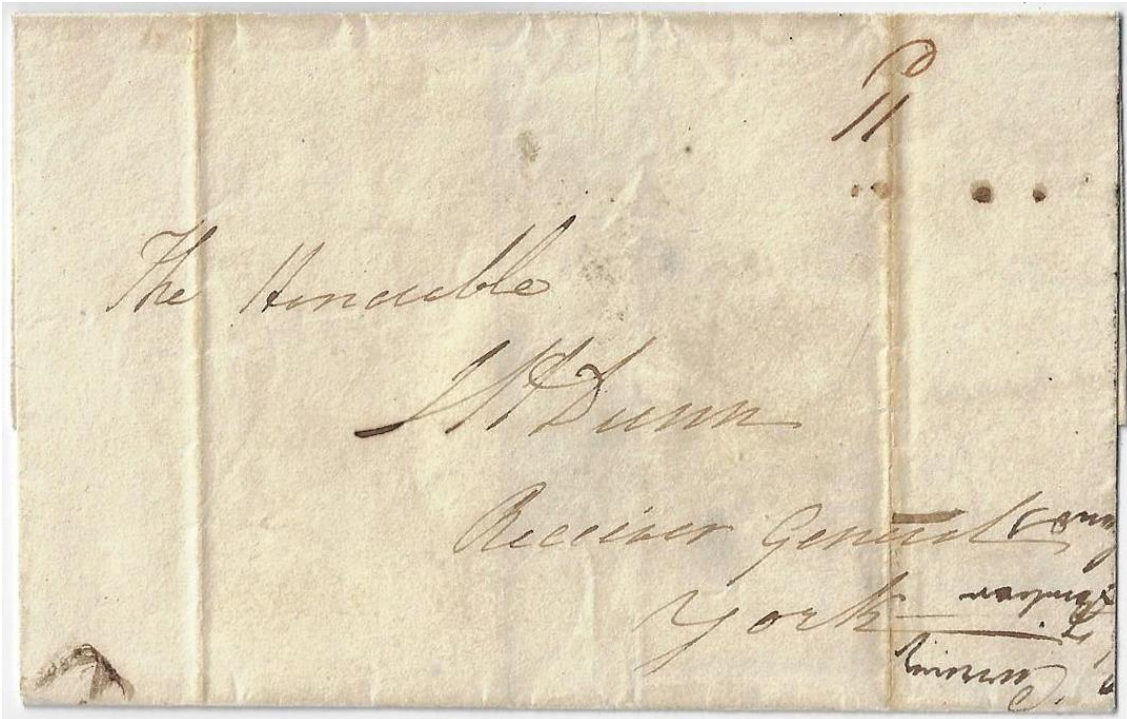 11
The Honorable
J H Dunn
Receiver General
York